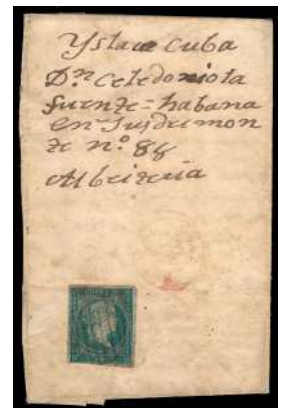 Ysla de Cuba
Dn Celedonio la
fuente = habana
en Jus del mon
te n.º 88
Albeiteria